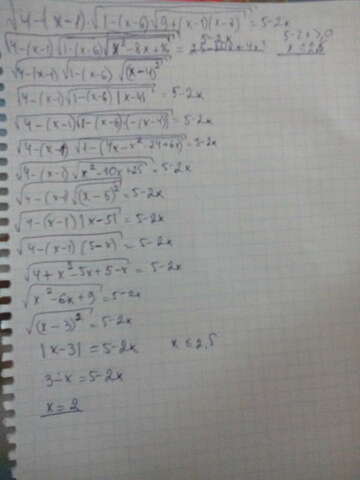 √(4-(x-1)·√(1-(x-6)√(9+(x-1)(x-7)))) = 5-2x
√(4-(x-1)√(1-(x-6)√(x²-8x+16))) = 5-2x    5-2x≥0
√(4-(x-1)√(1-(x-6)√((x-4)²)))    x≤2,5
√(4-(x-1)√(1-(x-6)|x-4|)) = 5-2x
√(4-(x-1)√(1-(x-6)(-(x-4)))) = 5-2x
√(4-(x-1)√(1-(4x-x²-24+6x))) = 5-2x
√(4-(x-1)√(x²-10x+25)) = 5-2x
√(4-(x-1)√((x-5)²)) = 5-2x
√(4-(x-1)|x-5|) = 5-2x
√(4-(x-1)(5-x)) = 5-2x
√(4+x²-5x+5-x) = 5-2x
√(x²-6x+9) = 5-2x
√((x-3)²) = 5-2x
|x-3| = 5-2x    x≤2,5
3-x = 5-2x
x=2